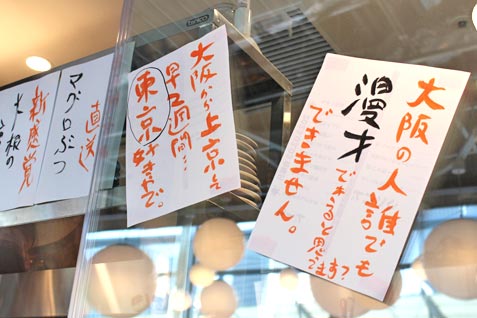 大阪の人誰でも
漫才
できると思ってます?
できません。
大阪から上京して
早2週間…
東京
好きやで。
直送
マグロぶつ
新感覚
大根の